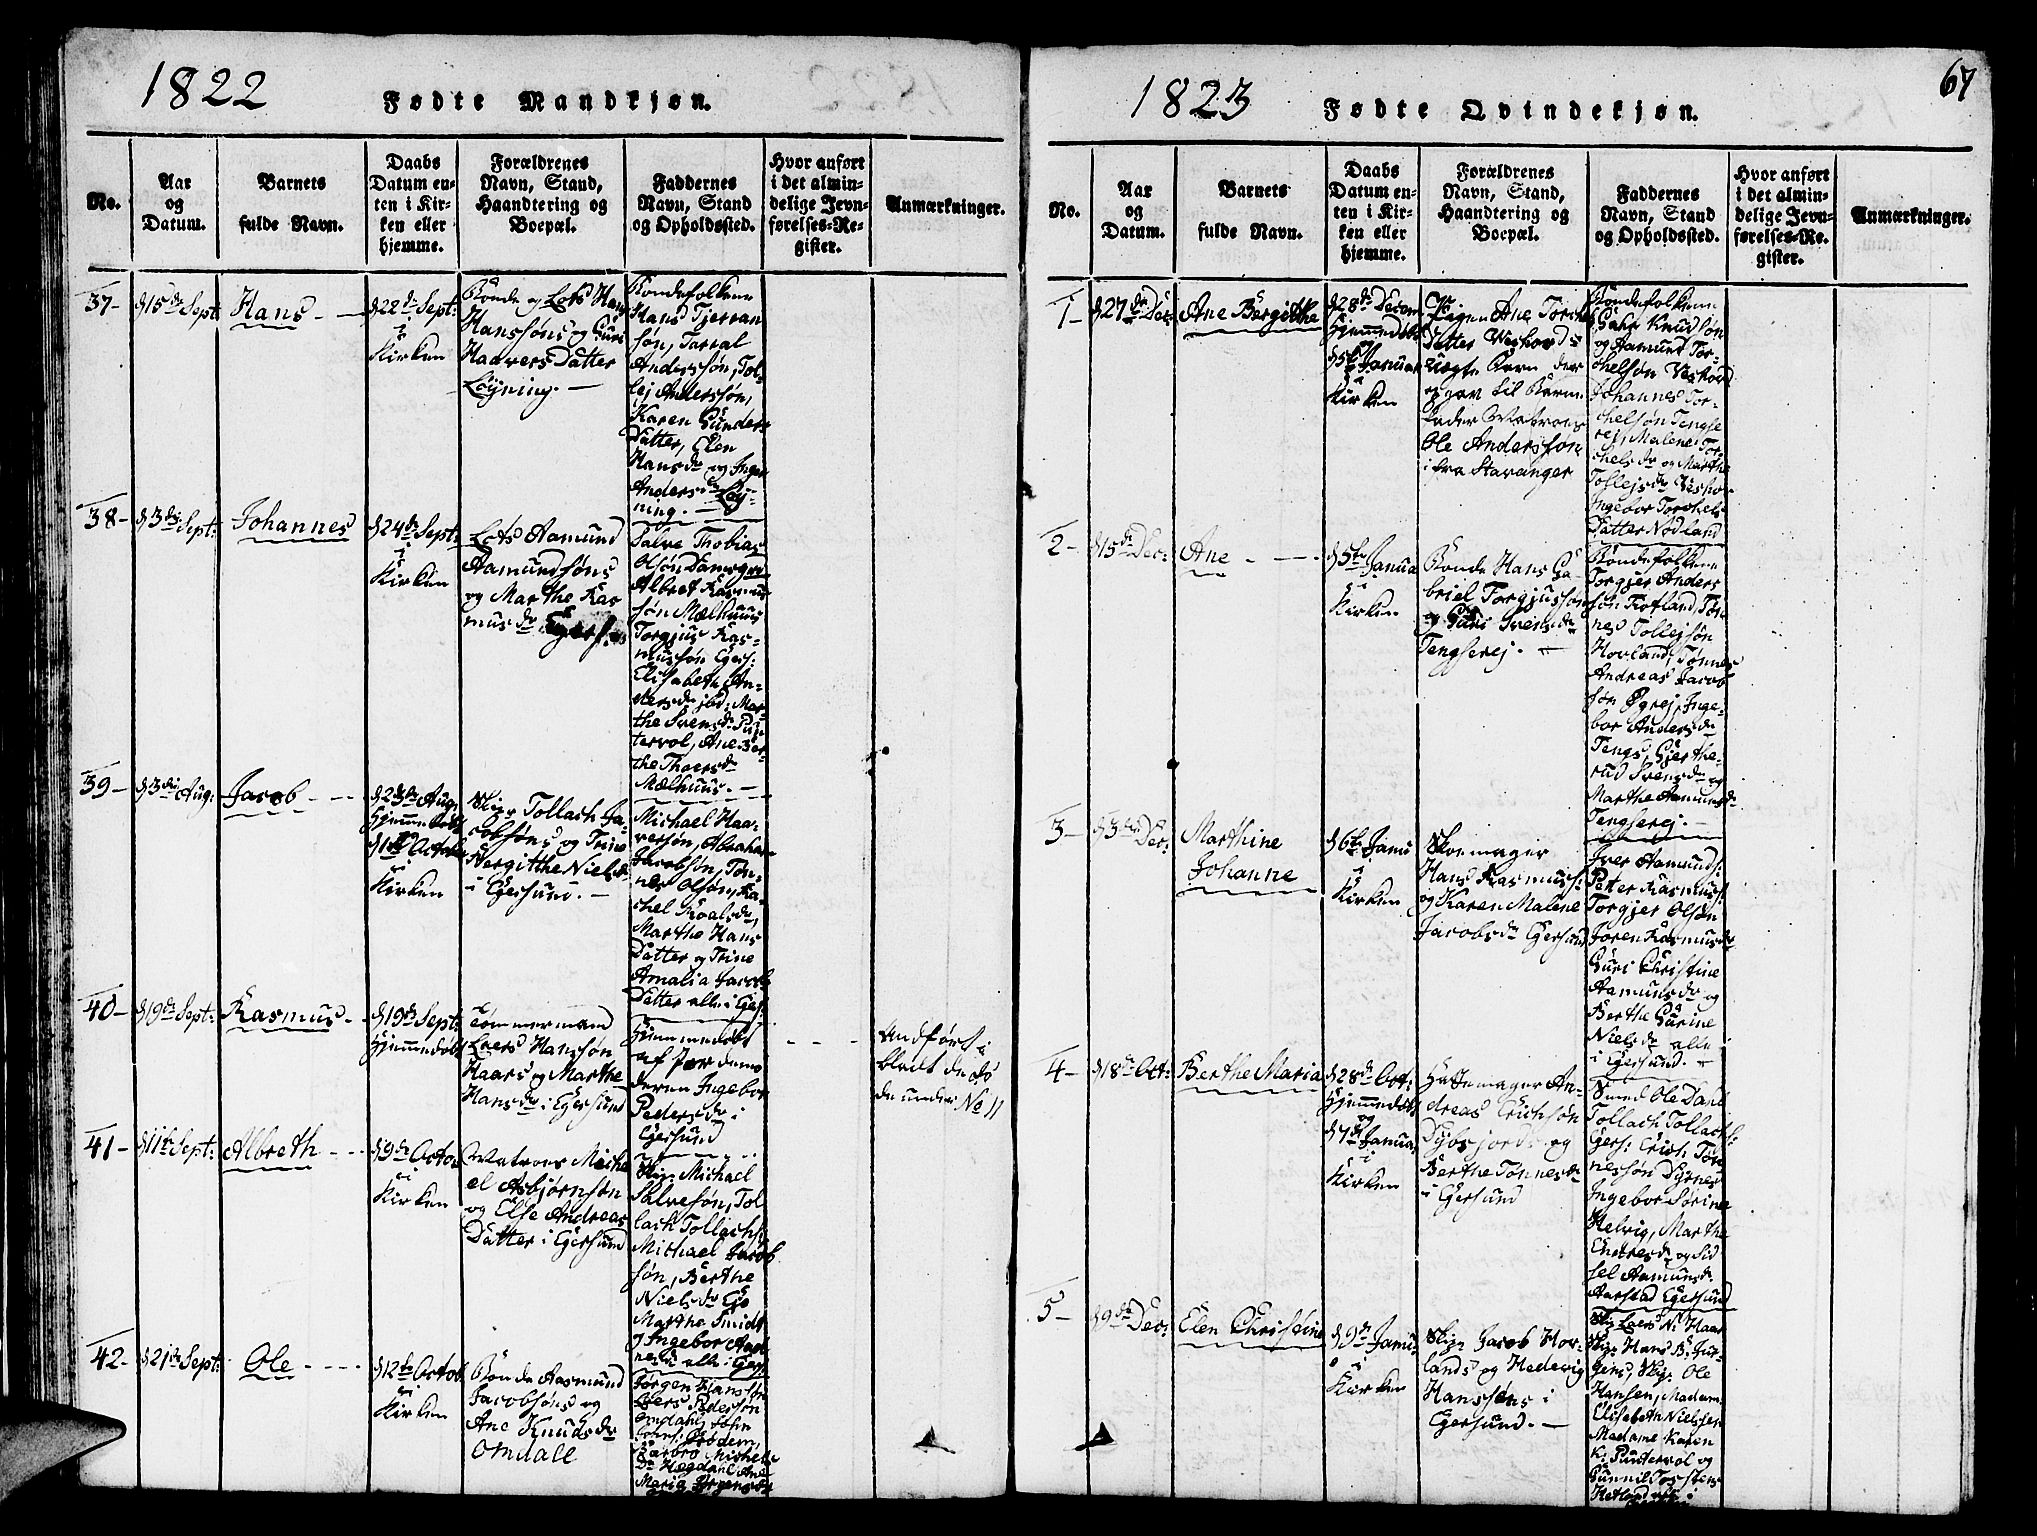 1822
Fødte Mandkjøn.
No.
Aar
og
Datum.
Barnets
fulde Navn.
Daabs
Datum en-
ten i Kir-
ken eller
hjemme.
Forældrenes
Navn, Stand,
Haandtering og
Boepæl.
Faddernes
Navn, Stand
og Opholdssted.
Hvor anført
i det almin-
delige Jevn-
førelses-Re-
gister.
Anmærkninger.
37-
d 15de Sept:
Hans
d 22de Sept:
i
Kirken
Bonde og Lots Hans
Hanssøns og Guri
Haavers Datter
Løyning. -
Bondefolkene
Hans Tjerran
søn, Tarral
Anderssøn, Tol-
lej Anderssøn,
Karen Gunders
Datter, Elen
Hansdr og Inger
Andersdr Løy-
ning. -
38-
d 3die Sept:
Johannes
d 24de Sept:
i
Kirken
Lots Aamund
Aamundsøns
og Marthe Ras
musdr Egers.
Salve Thobias
Olsøn Damsgrd
Albret Rasmus
søn Mælhuus
Torgjus Ras-
mussøn Egers:
Elisabeth An-
dersdr ibd: Mar-
the Svensdr Pun-
tervol, Ane Ber-
the Thoersdr
Mælhuus. -
39-
d 3die Aug:
Jacob
d 23de Aug:
Hjemmedøbt
d 1ste October
i
Kirken
Skipr Tollach Ja-
cobsøns og Trine
Bergitthe Nielsdr
i Egersund. -
Michael Haa-
versøn, Abraham
Jacobsøn, Tøn-
nes Olsøn, Ra-
chel Roalsdr,
Marthe Hans
Datter og Trine
Amalia Jacobs
Datter alle i Egers
40-
d 19de Sept:
Rasmus
d 19de Sept:
Hjemmedøbt
Tømmermand
Laers Hanssøn
Haars og Marthe
Hansdr i Egersund
Hjemmedøbt
af Jordemo
deren Ingebor
Pedersdr i
Egersund
Andført i
bladt de dø
de under No 11
41-
d 11te Sept:
Albreth
d 9de Octo
i
Kirken
Matros Micha
el Asbjørnsøn
og Else Andreas
Datter i Egersund
Skip: Michael
Salvesøn, Tol
lach Tollachs:
Michael Jacob
søn, Berthe
Nielsdr Eje
Marthe Smidt
og Ingebor Aan
nesdr alle i Egers
42-
d 21de Sept:
Ole
d 12te Octob
i
Kirken
Bonde Aasmund
Jacobsøns og
Ane Knudsdr
Omdall
Jørgen Hanssøn
Laers Pedersøn
Omdahl,
Barbro Michels
Dr Hegdahl Ane
Maria Jørgensdr
1823
67
Fødte Qvindekjøn.
No.
Aar
og
Datum.
Barnets
fulde Navn.
Daabs
Datum en-
ten i Kir-
ken eller
hjemme.
Forældrenes
Navn, Stand,
Haandtering og
Boepæl.
Faddernes
Navn, Stand
og Opholdssted.
Hvor anført
i det almin-
delige Jevn-
førelses-Re-
gister.
Anmærkninger.
1-
d 27de Dec:
Ane Bergithe
d 28de Decem
Hjemmedøbt
d 5te Januar
i
Kirken
Pigen Ane Torchels
Datter Veshovd
uægte Barn der
opgav til Barne
fader Matros
Ole Andersson
ifra Stavanger
Bondefolkene
Gahr Knudsøn
og Aamund Tor-
chelsøn Veshovd
Johannes Tor-
chelsøn Tengse
rej, Malene Tor-
chelsdr og Marthe
Tollejsdr Vesho
Ingebor Torchels
Datter Nodland
2-
d 15de Dec:
Ane
d 5te Janua
i
Kirken
Bonde Hans Ga-
briel Torgjussøn
og Guri Svensdr
Tengserej. -
Bondefolkene
Torgjer Anders
søn Rotland, Tøn-
nes Tollejsøn
Hovland, Tønnes
Andreas Jacob
søn Øgrej, Inge-
bor Andersdr
Tengs, Gjerthe-
rud Svensdr og
Marthe Aamunsdr
Tengserej. -
3-
d 3die Dec:
Marthine
Johanne
d 6te Janu
i
Kirken
Skoemager
Hans Rasmuss:
og Karen Malene
Jacobsdr Egersund
Iver Aamunds:
Peter Rasmuss:
Torgjer Olsøn
Joren Rasmusdr
Guri Christine
Aamunsdr og
Berthe Gurine
Nielsdr alle
i Egersund. -
4-
d 18de Oct:
Berthe Maria
d 28de Oct:
Hjemmedøbt
og
d 7de Janua
i
Kirken
Hattemager An-
dreas Erichsøn
Dybsjords og
Berthe Tønnesdr
i Egersund
Smed Ole Dahl
Tollach Tollachs:
Egers: Erich Tøn
nessøn Dyrnes
Ingebor Sørine
Helvig, Marthe
Endresdr og Sid
sel Aamunsdr
Aarstad Egersund
5-
d 9de Dec:
Elen Christine
d 9de Janu:
i
Kirken
Skipr Jacob Hov-
lands og Hedevig
Hanssøns i
Egersund. -
Skip Laers N: Haar
Skipr Hans B: Jur-
gens, Skip: Ole
Hansen, Madam
Elisabeth Nielsen
Madame Karen
K: Puntervol og
Gunnil Torstens
Hetland alle i